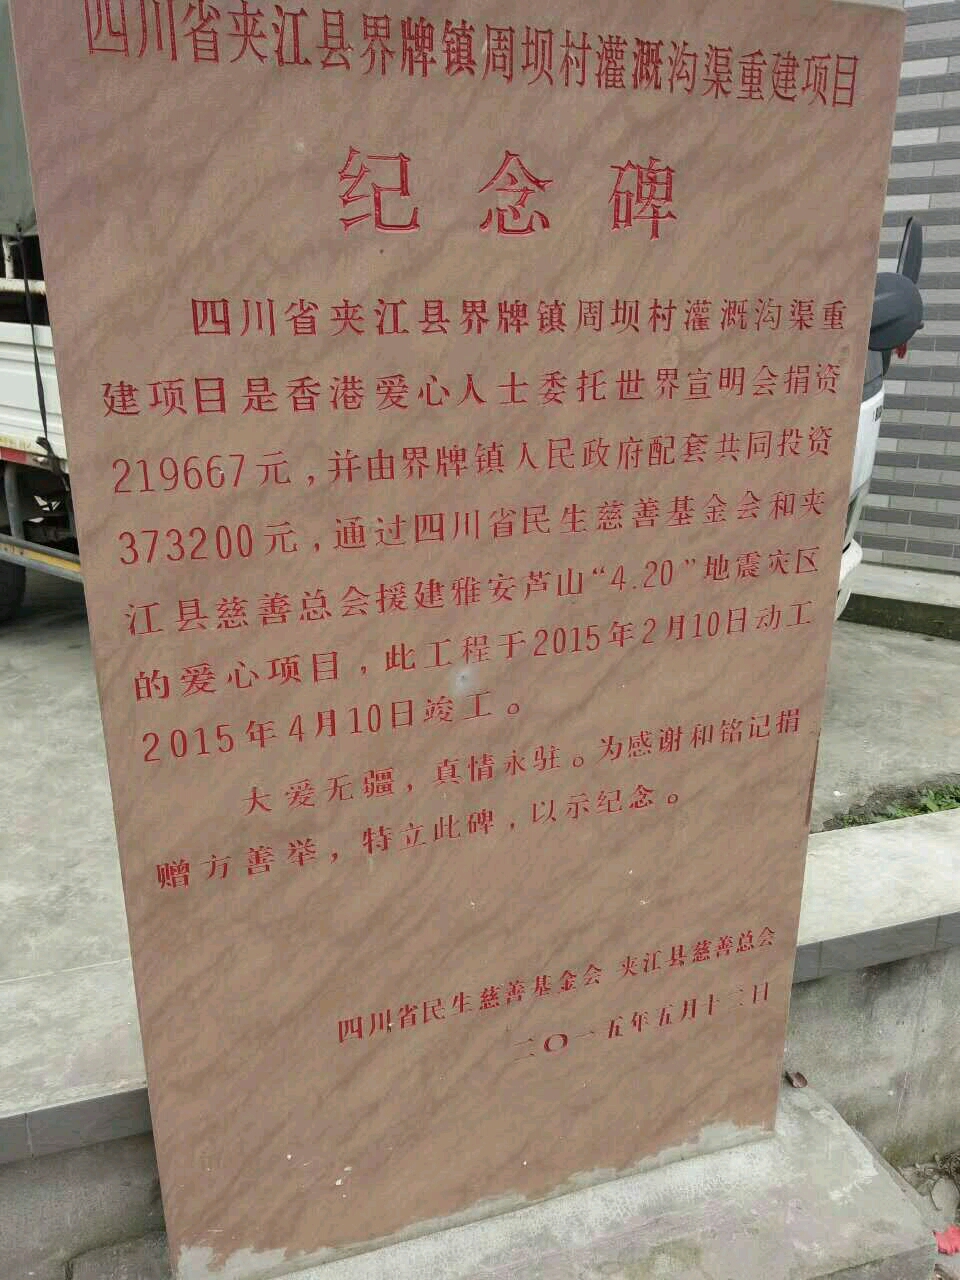 四川省夹江县界牌镇周坝村灌溉沟渠重建项目
纪念碑
四川省夹江县界牌镇周坝村灌溉沟渠重
建项目是香港爱心人士委托世界宣明会捐资
219667元，并由界牌镇人民政府配套共同投资
373200元，通过四川省民生慈善基金会和夹
江县慈善总会援建雅安芦山“4.20”地震灾区
的爱心项目，此工程于2015年2月10日动工
2015年4月10日竣工。
大爱无疆，真情永驻。为感谢和铭记捐
赠方善举，特立此碑，以示纪念。
四川省民生慈善基金会 夹江县慈善总会
二〇一五年五月十二日